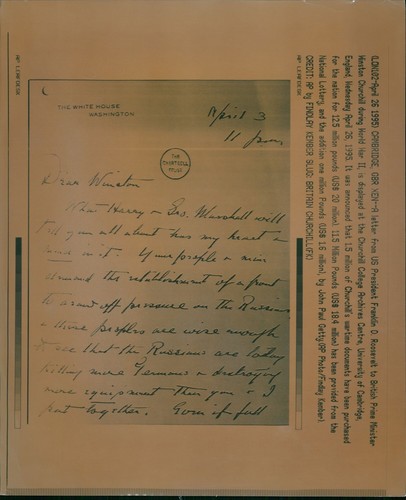 THE WHITE HOUSE
WASHINGTON
April 3
11 p.m.
THE
CHARTWELL
TRUST
Dear Winston
What Harry & Geo. Marshall will
tell you all about has my heart &
mind in it. Your people & mine
demand the establishment of a front
to draw off pressure on the Russians,
& these peoples are wise enough
to see that the Russians are today
killing more Germans & destroying
more equipment than you & I
put together. Even if full
(LON102-April 26 1995) CAMBRIDGE, GBR XEN--A letter from US President Franklin D. Roosevelt to British Prime Minister
Winston Churchill during World War II, is displayed at the Churchill College Archives Centre, University of Cambridge,
England, Wednesday April 26, 1995. It was announced that 1.5 million of Churchill's wartime documents have been purchased
for the nation for 12.5 million pounds (US$ 20 million). 11.5 Million Pounds (US$ 18.4 million) has been provided from the
National Lottery, and the addition one million Pounds (US$ 1.6 million), by John Paul Getty.(AP Photo/Findlay Kember)
CREDIT: AP by FINDLAY KEMBER SLUG: BRITAIN CHURCHILL(FK)
AP LEAFDESK
AP LEAFDESK